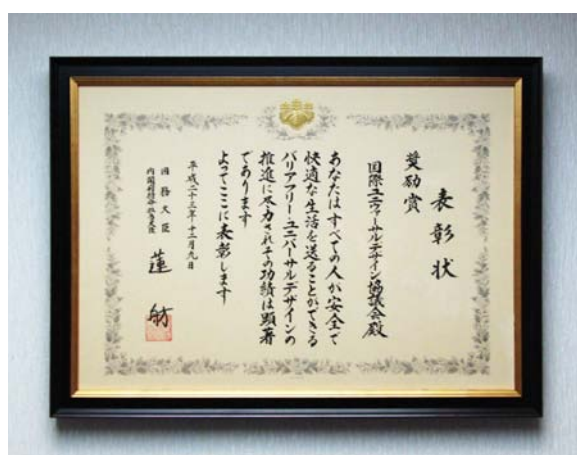 表彰状
奨励賞
国際ユニヴァーサルデザイン協議会殿
あなたはすべての人が安全で
快適な生活を送ることができる
バリアフリー・ユニバーサルデザインの
推進に尽力されその功績は顕著
であります
よってここに表彰します
平成二十三年十二月九日
国務大臣
内閣府特命担当大臣
蓮舫